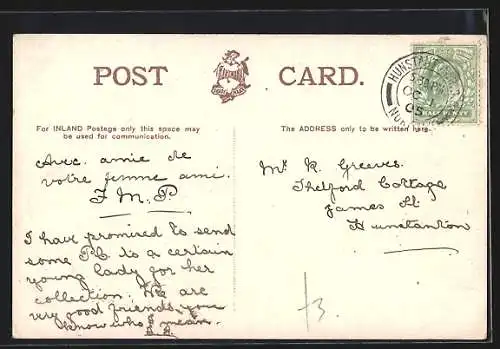 POST CARD.
For INLAND Postage only this space may
be used for communication.
The ADDRESS only to be written here.
Avec. amie de
votre femme ami.
F. M. P.
I have promised to send
some P.C. to a certain
young lady for her
collection. We are
very good friends, you
know who I mean.
Mr R. Greeves.
Thetford Cottage
James St.
Hunstanton
HALFPENNY
OC 1
05